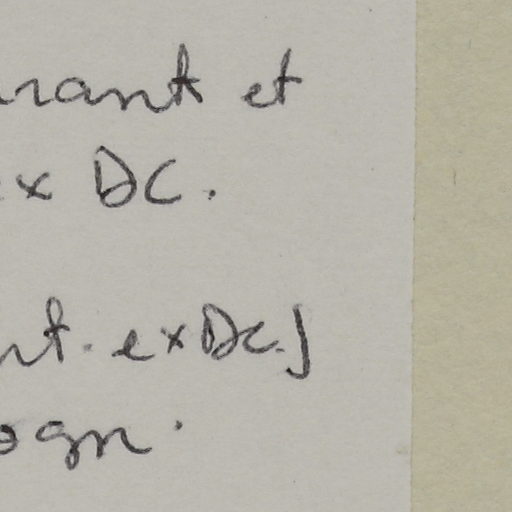 rant et
ex DC.
nt. ex Dc.]
ogn.